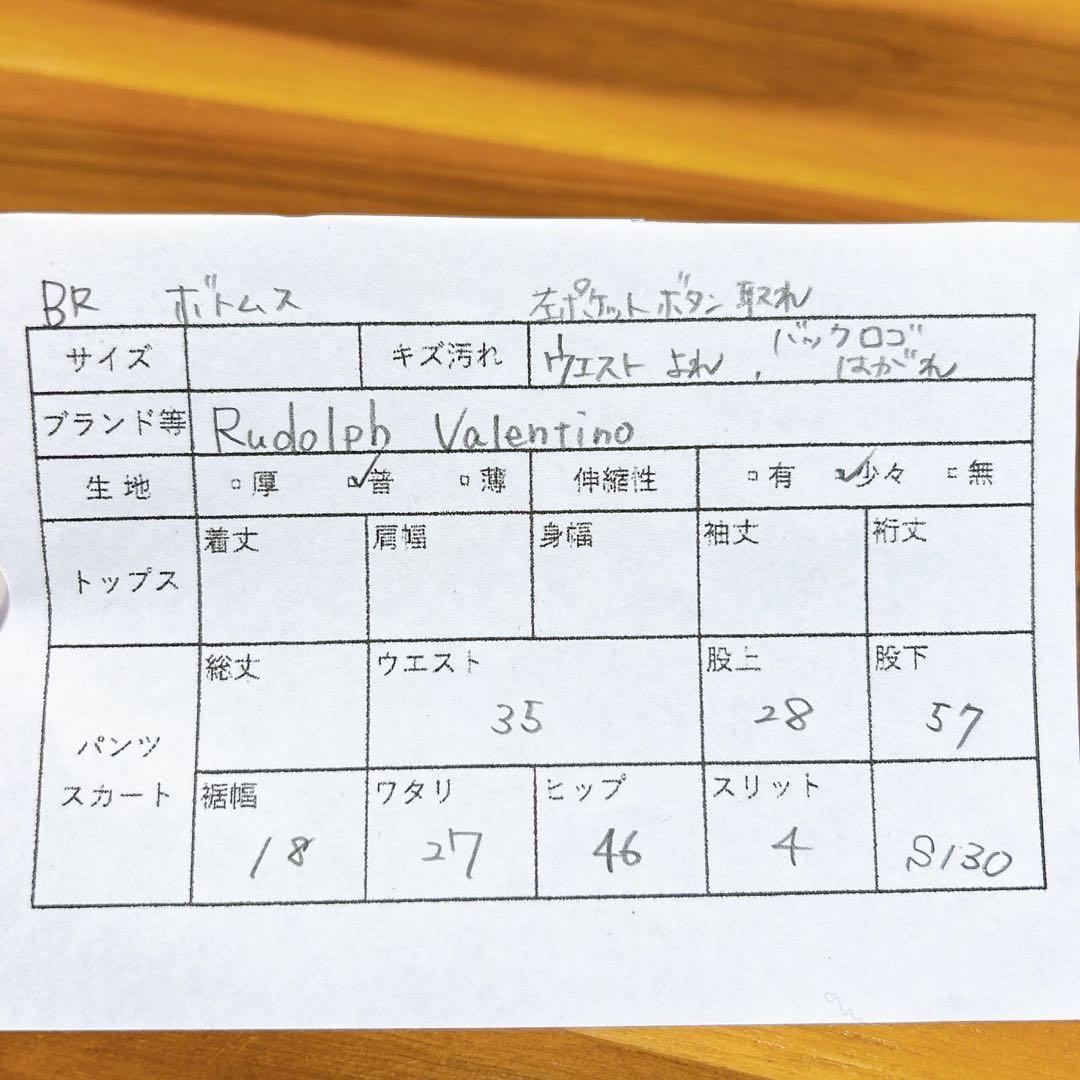 BR ボトムス 左ポケットボタン取れ
サイズ キズ汚れ ウエストよれ、 バックロゴはがれ
ブランド等 Rudolph Valentino
生地 □厚 ☑普 □薄 伸縮性 □有 ☑少々 □無
トップス 着丈 肩幅 身幅 袖丈 裄丈
パンツ スカート
総丈 ウエスト 35 股上 28 股下 57
裾幅 18 ワタリ 27 ヒップ 46 スリット 4 S130